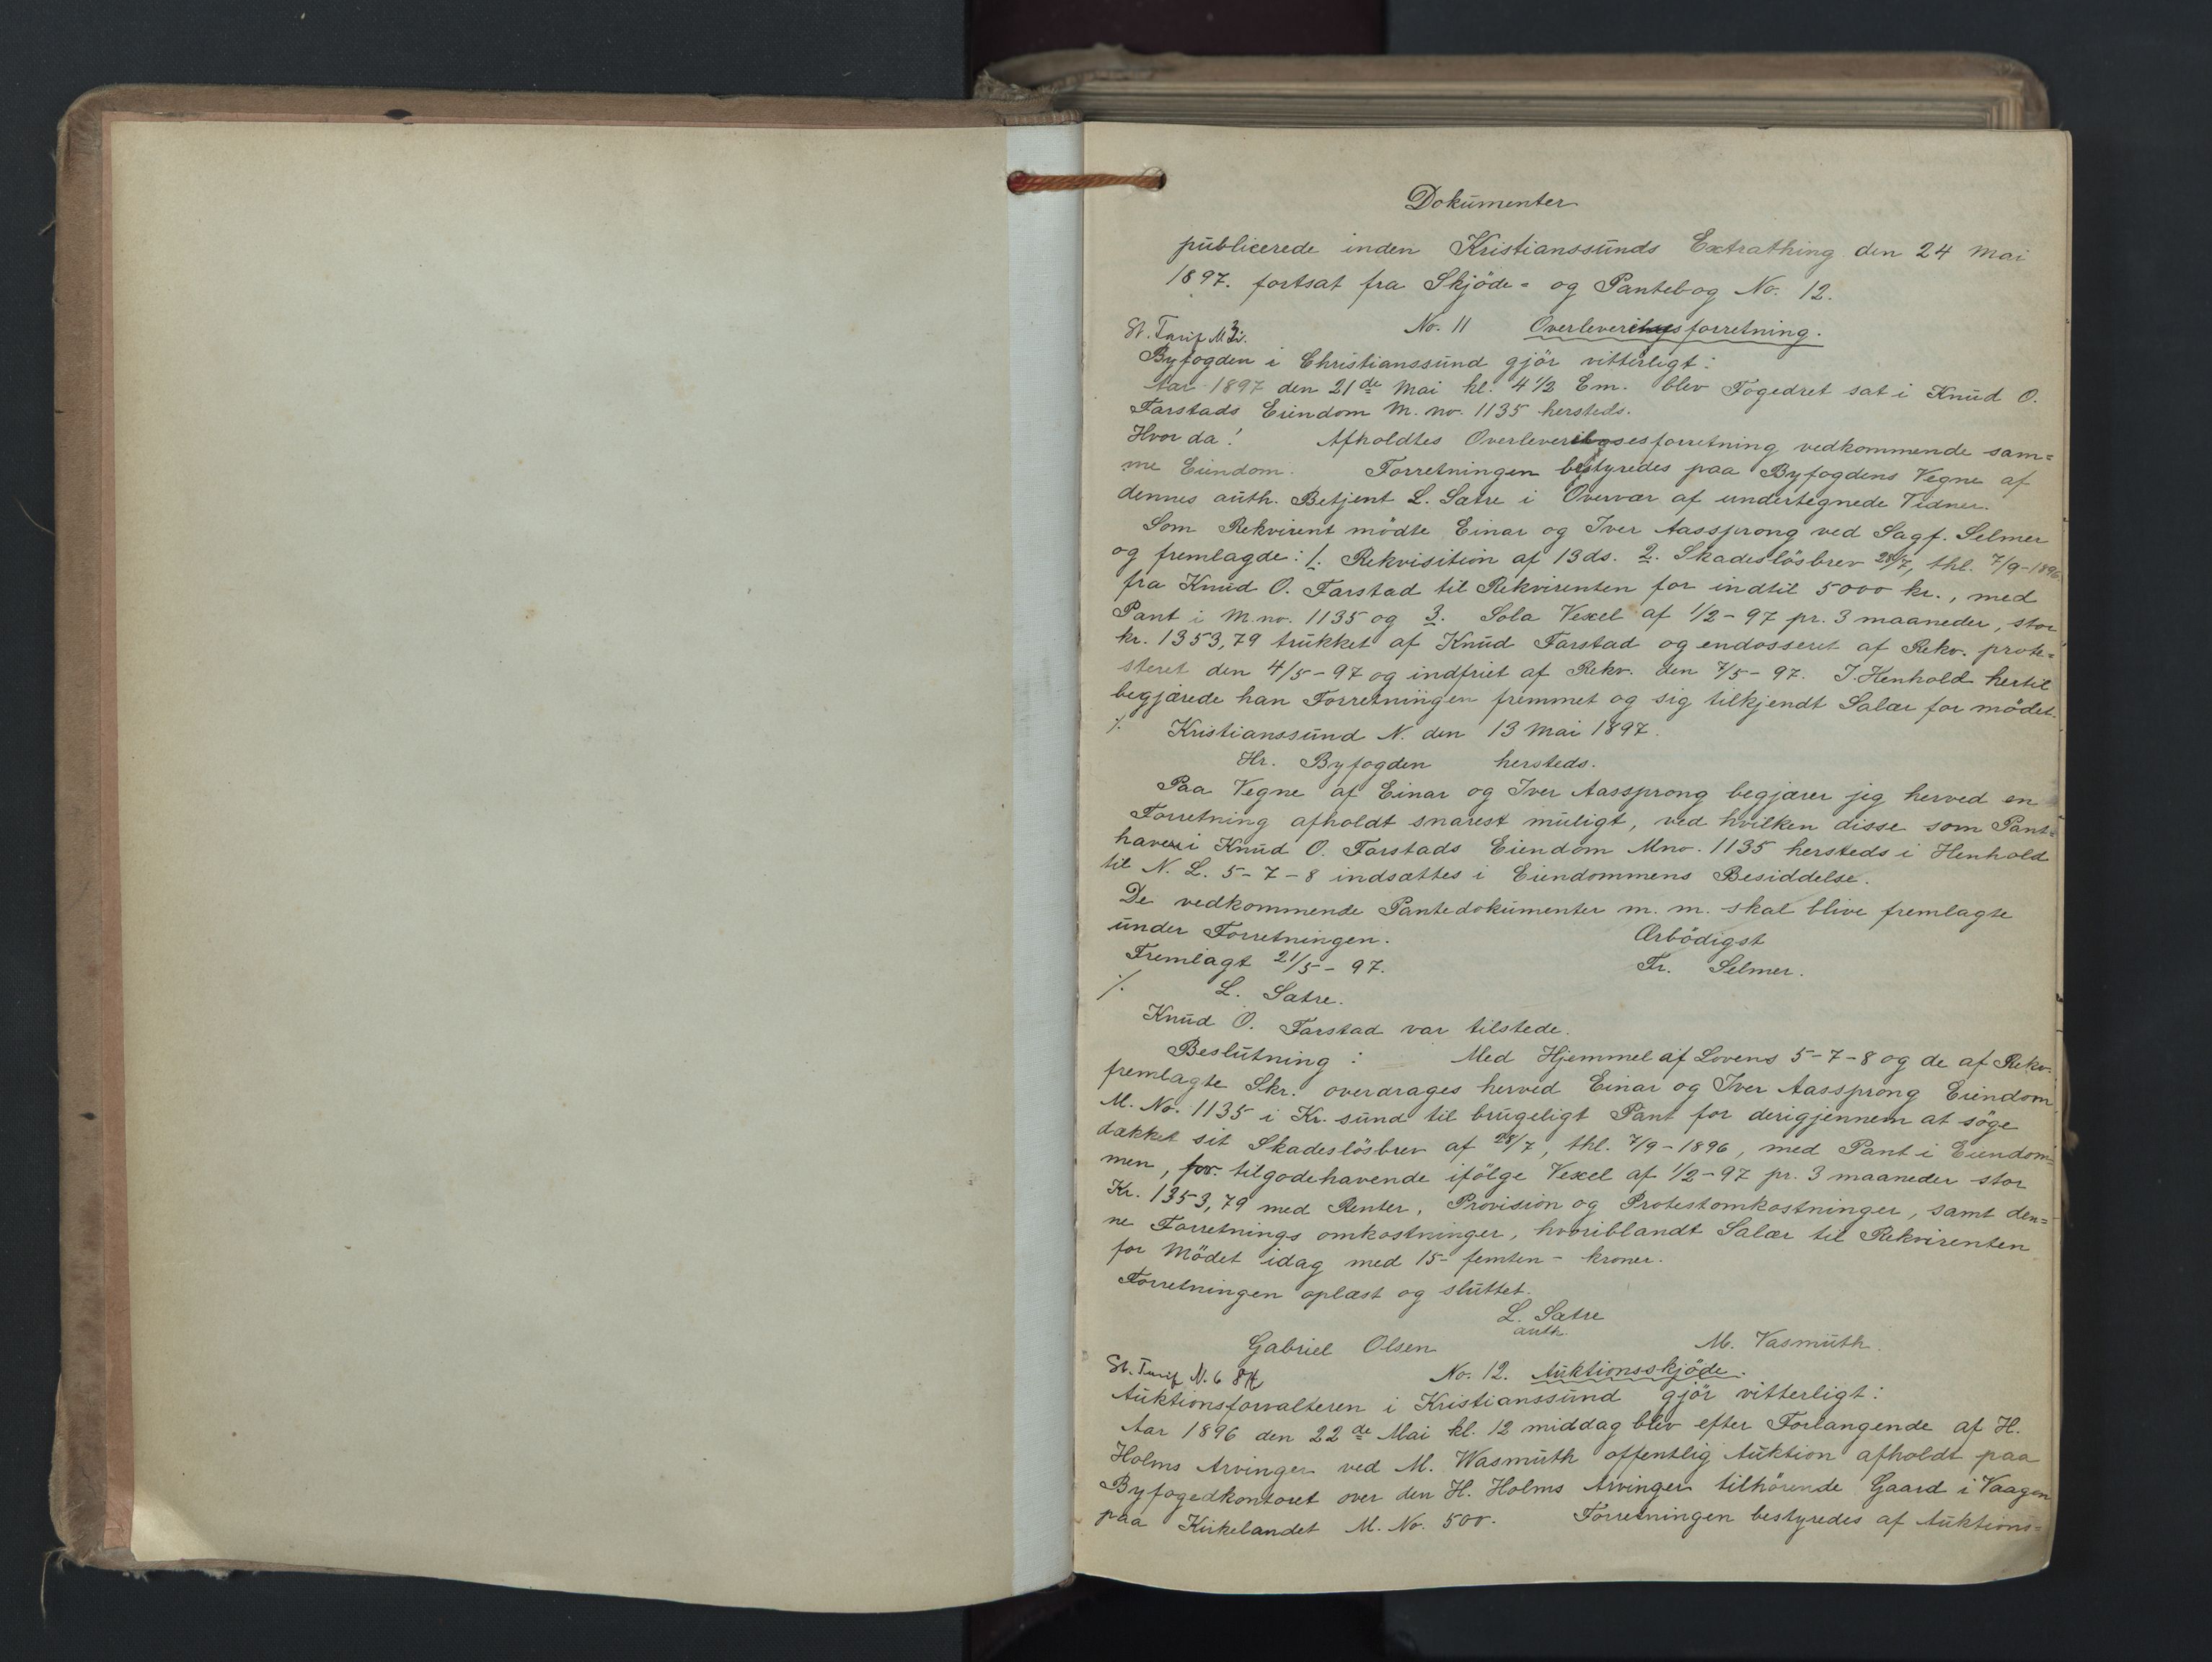 Dokumenter
publicerede inden Kristianssunds Extrathing den 24 Mai
1897. fortsat fra Skjöde- og Pantebog No. 12.
St. Tarif
No. 11 Overleveringsforretning.
Byfogden i Christianssund gjör vitterligt:
Aar 1897 den 21de Mai kl. 4 1/2 Em. blev Fogedret sat i Knud O.
Farstads Eiendom M. no. 1135 hersteds.
Hvor da! Afholdtes Overleveringsesforretning vedkommende sam=
me Eiendom. Forretningen bestyredes paa Byfogdens Vegne af
dennes auth. Betjent L. Sætre i Overvær af undertegnede Vidner.
Som Rekvirent mödte Einar og Iver Aassprong ved Sagf. Selmer
og fremlagde: 1. Rekvisition af 13 ds. 2. Skadeslösbrev 28/7, thl. 7/9-1896.
fra Knud O. Farstad til Rekvirenten for indtil 5000 kr., med
Pant i M.no. 1135 og 3. Sola Vexel af 1/2-97 pr. 3 maaneder, stor
kr. 1353,79 trukket af Knud Farstad og endosseret af Rekv. prote=
steret den 4/5-97 og indfriet af Rekv. den 7/5-97. I Henhold hertil
begjærede han Forretningen fremmet og sig tilkjendt Salær for mödet.
./. Kristianssund N. den 13 Mai 1897.
Hr. Byfogden hersteds.
Paa Vegne af Einar og Iver Aassprong begjærer jeg herved en
Forretning afholdt snarest muligt, ved hvilken disse som Pant=
havere i Knud O. Farstads Eiendom Mno. 1135 hersteds i Henhold
til N. L. 5-7-8 indsættes i Eiendommens Besiddelse.
De vedkommende Pantedokumenter m. m. skal blive fremlagte
under Forretningen. Ærbödigst
Fremlagt 21/5-97. Fr. Selmer.
./. L. Sætre.
Knud O. Farstad var tilstede.
Beslutning: Med Hjemmel af Lovens 5-7-8 og de af Rekv.
fremlagte Skr. overdrages herved Einar og Iver Aassprong Eiendom
M. No. 1135 i Kr.sund til brugeligt Pant for derigjennem at söge
dækket sit Skadeslösbrev af 28/7, thl. 7/9-1896, med Pant i Eiendom=
men, for tilgodehavende ifölge Vexel af 1/2-97 pr. 3 maaneder stor
Kr. 1353,79 med Renter, Provision og Protestomkostninger, samt den=
ne Forretnings omkostninger, hvoriblandt Salær til Rekvirenten
for Mödet idag med 15- femten- kroner.
Forretningen oplæst og sluttet.
L. Sætre
auth.
Gabriel Olsen M. Vasmuth.
St. Tarif N. 6
No. 12. Auktionsskjöde.
Auktionsforvalteren i Kristianssund gjör vitterligt:
Aar 1896 den 22de Mai kl. 12 middag blev efter Forlangende af H.
Holms Arvinger ved M. Wasmuth offentlig Auktion afholdt paa
Byfogedkontoret over den H. Holms Arvinger tilhörende Gaard i Vaagen
paa Kirkelandet M. No. 500. Forretningen bestyredes af Auktions=